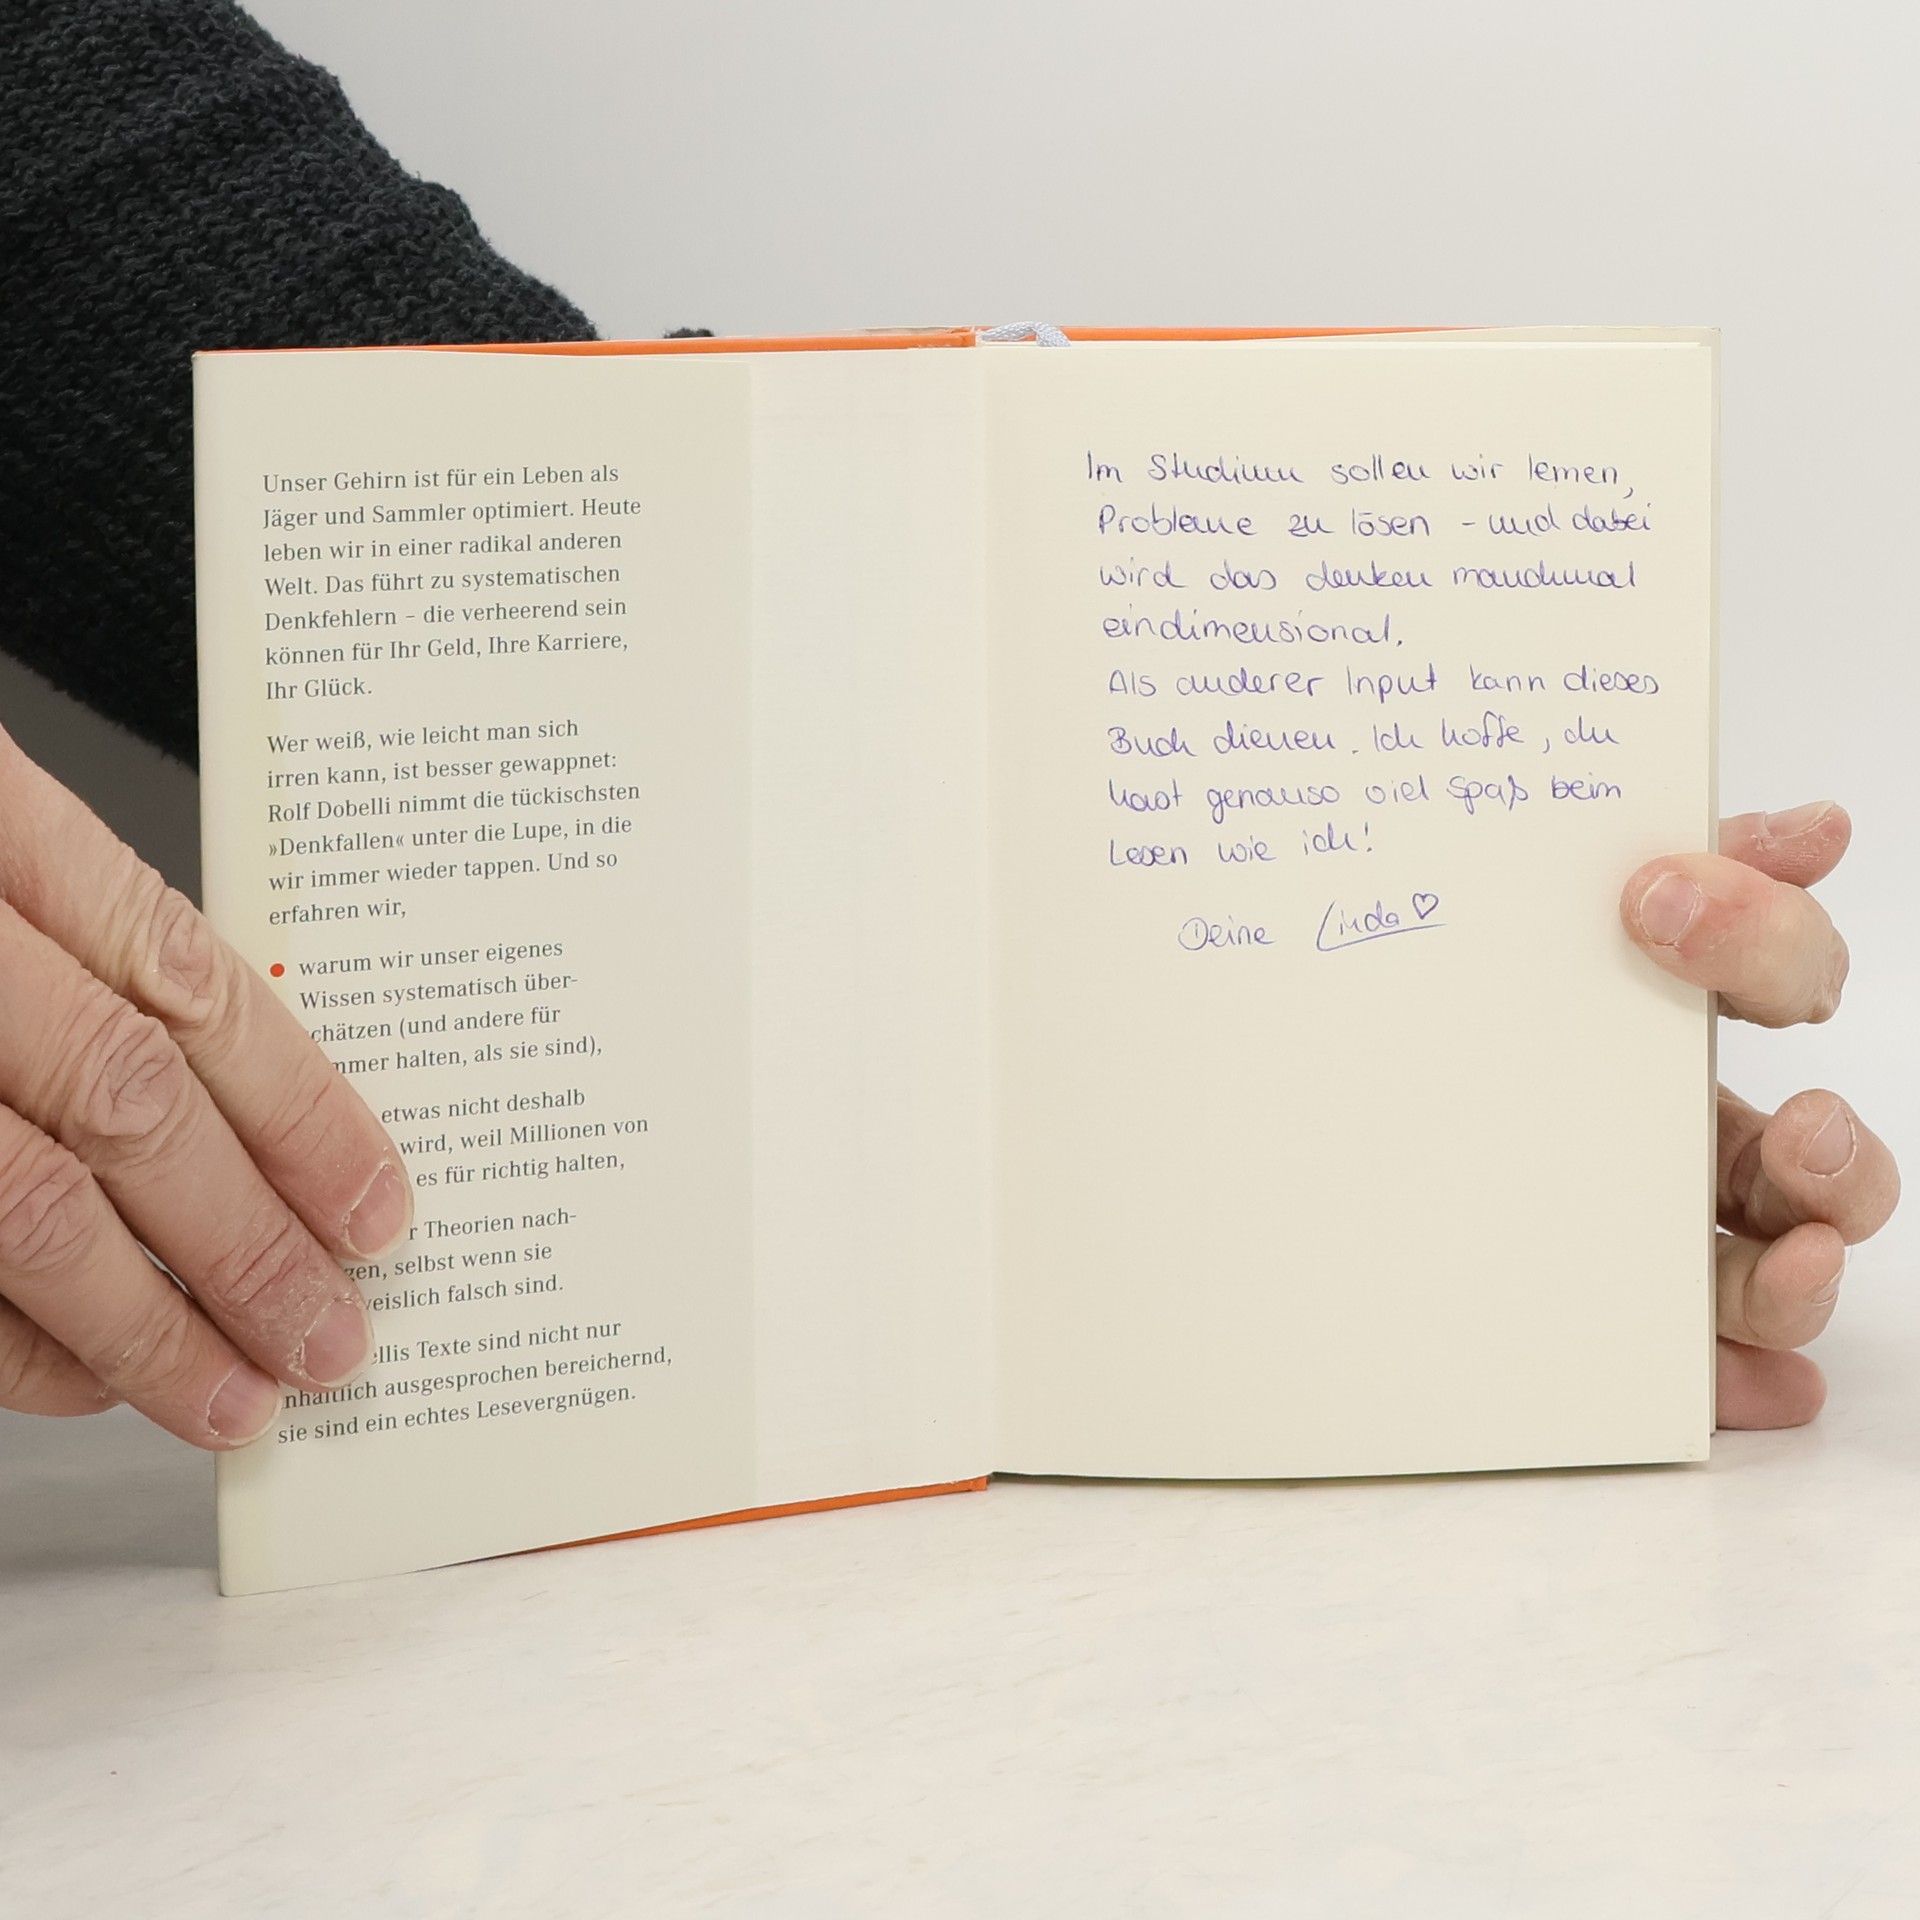 Unser Gehirn ist für ein Leben als
Jäger und Sammler optimiert. Heute
leben wir in einer radikal anderen
Welt. Das führt zu systematischen
Denkfehlern – die verheerend sein
können für Ihr Geld, Ihre Karriere,
Ihr Glück.
Wer weiß, wie leicht man sich
irren kann, ist besser gewappnet:
Rolf Dobelli nimmt die tückischsten
»Denkfallen« unter die Lupe, in die
wir immer wieder tappen. Und so
erfahren wir,
warum wir unser eigenes
Wissen systematisch über-
chätzen (und andere für
mmer halten, als sie sind),
etwas nicht deshalb
wird, weil Millionen von
es für richtig halten,
r Theorien nach-
gen, selbst wenn sie
weislich falsch sind.
ellis Texte sind nicht nur
nhaltlich ausgesprochen bereichernd,
sie sind ein echtes Lesevergnügen.
Im Studium sollen wir lernen,
Probleme zu lösen – und dabei
wird das denken manchmal
eindimensional.
Als anderer Input kann dieses
Buch dienen. Ich hoffe, du
hast genauso viel Spaß beim
Lesen wie ich!
Deine Linda ♡